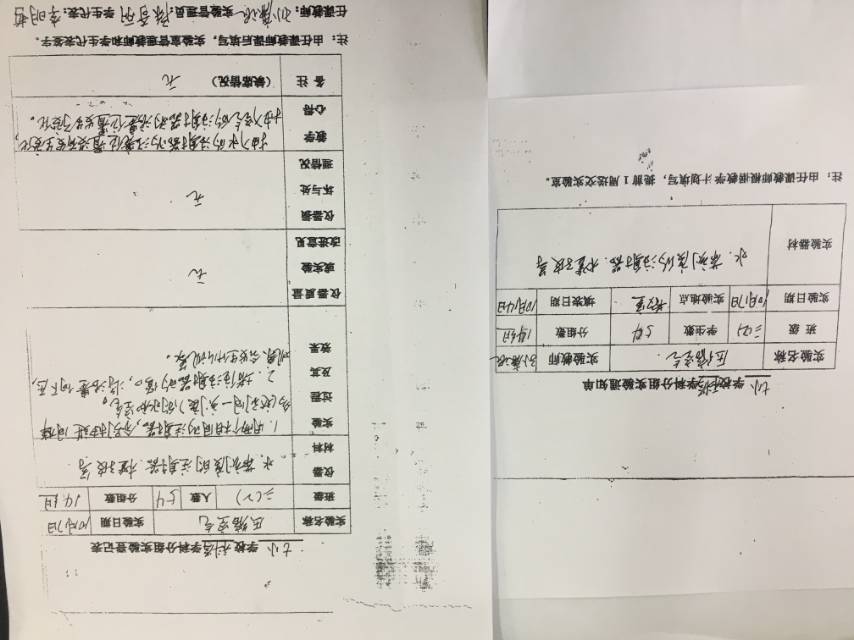 七小 学校科学学科分组实验登记表
实验名称 压缩空气 实验日期 10月17日
班级 三(2) 人数 54 分组数 14组
仪器材料 水、带刻度的注射器、橡皮垫
实验过程及其效果 1. 用两个相同的注射器,分别抽进同样多(达到同一刻度)的水和空气。
2. 堵住注射器的口,
仪器质量或实验改进意见 无
仪器损坏与处理情况 无
教学心得 抽水的注射器的活塞位置没有发生变化,
抽空气的注射器的活塞位置发生了变化。
备注 (缺席情况) 无
注:由任课教师课后填写,实验室管理教师和学生代表签字。
任课教师: 实验管理员: 学生代表:
七小 学校科学学科分组实验通知单
实验名称 压缩空气 实验教师
班级 三(2) 学生数 54 分组数 14组
实验日期 10月17日 实验地点 教室 填表日期 10月14日
实验器材 水、带刻度的注射器、橡皮垫
注:由任课教师根据教学计划填写,提前1周送交实验室。